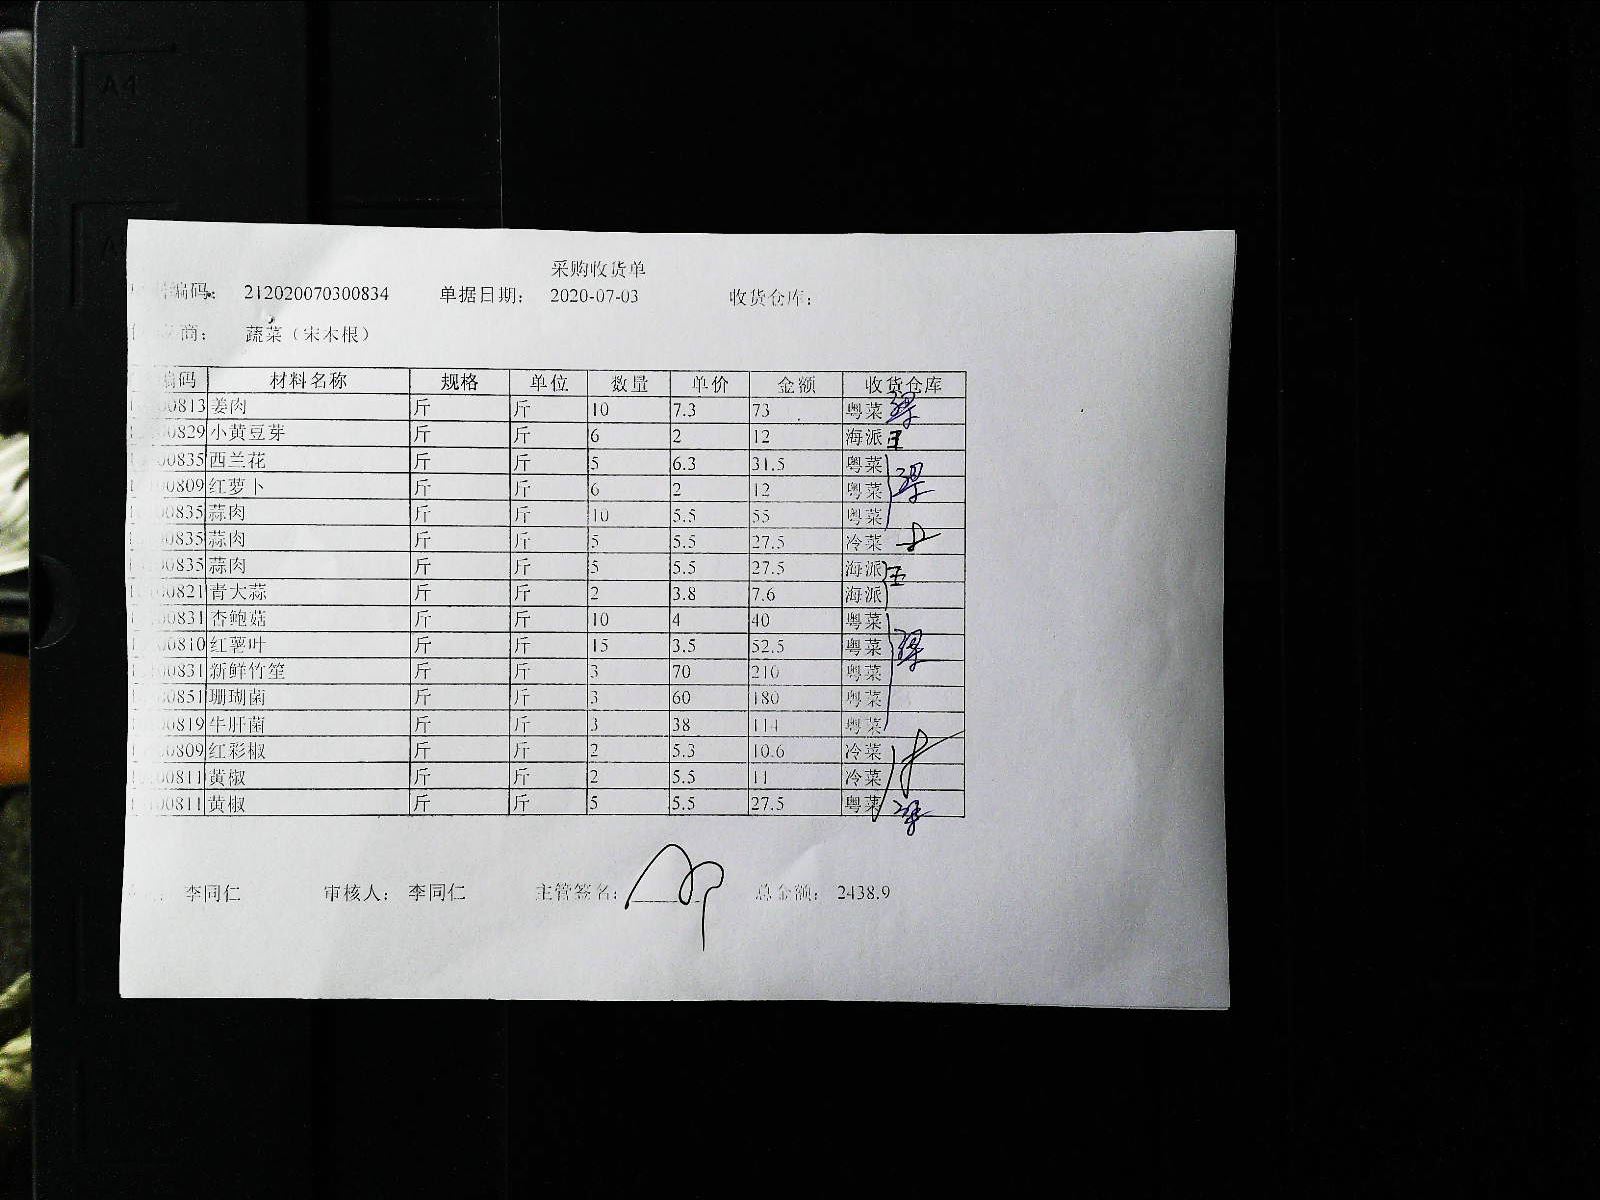 采购收货单
编码： 212020070300834 单据日期： 2020-07-03 收货仓库：
商： 蔬菜（宋木根）
编码 材料名称 规格 单位 数量 单价 金额 收货仓库
00813 姜肉 斤 斤 10 7.3 73 粤菜 梁
00829 小黄豆芽 斤 斤 6 2 12 海派 王
00835 西兰花 斤 斤 5 6.3 31.5 粤菜
00809 红萝卜 斤 斤 6 2 12 粤菜 梁
00835 蒜肉 斤 斤 10 5.5 55 粤菜
00835 蒜肉 斤 斤 5 5.5 27.5 冷菜
00835 蒜肉 斤 斤 5 5.5 27.5 海派 王
00821 青大蒜 斤 斤 2 3.8 7.6 海派
00831 杏鲍菇 斤 斤 10 4 40 粤菜
00810 红薯叶 斤 斤 15 3.5 52.5 粤菜 梁
00831 新鲜竹笙 斤 斤 3 70 210 粤菜
00851 珊瑚菌 斤 斤 3 60 180 粤菜
00819 牛肝菌 斤 斤 3 38 114 粤菜
00809 红彩椒 斤 斤 2 5.3 10.6 冷菜
00811 黄椒 斤 斤 2 5.5 11 冷菜
00811 黄椒 斤 斤 5 5.5 27.5 粤菜 梁
李同仁 审核人： 李同仁 主管签名： 总金额： 2438.9